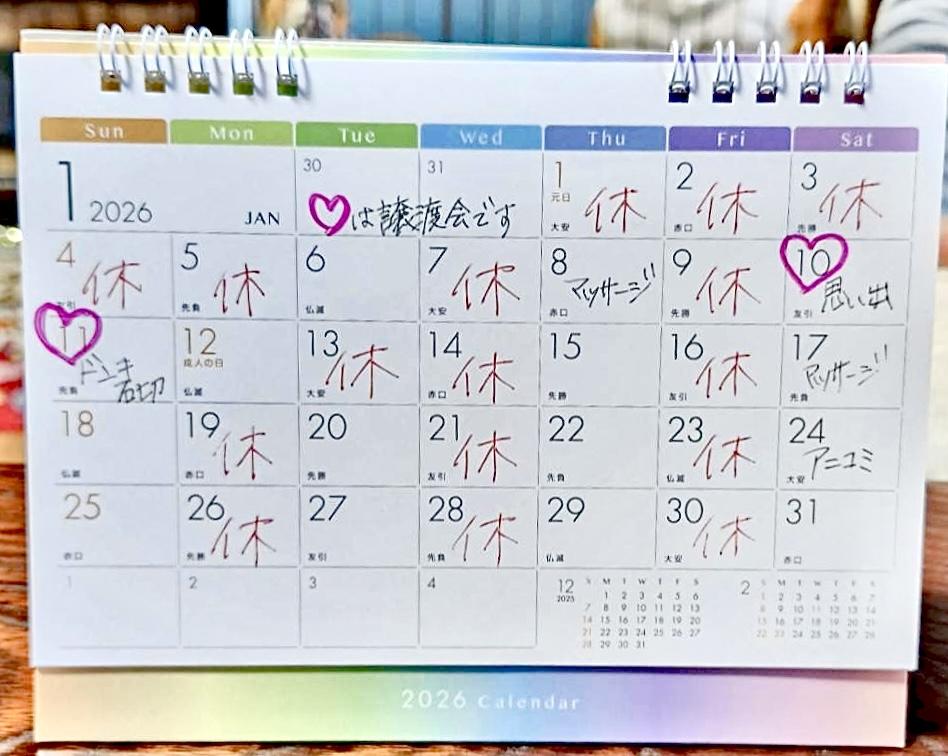 Sun Mon Tue Wed Thu Fri Sat
1 2026 JAN
30 31
♡は譲渡会です
1 元日 大安 休
2 赤口 休
3 先勝 休
4 友引 休
5 先負 休
6 仏滅
7 大安 休
8 赤口 マッサージ
9 先勝 休
10 友引 思い出
11 先負 ドンキ
石切
12 成人の日 仏滅
13 大安 休
14 赤口 休
15 先勝
16 友引 休
17 先負 マッサージ
18 仏滅
19 赤口 休
20 先勝
21 友引 休
22 先負
23 仏滅 休
24 大安 アニコミ
25 赤口
26 先勝 休
27 友引
28 先負 休
29 仏滅
30 大安 休
31 赤口
1 2 3 4
12 2025
S M T W T F S
1 2 3 4 5 6
7 8 9 10 11 12 13
14 15 16 17 18 19 20
21 22 23 24 25 26 27
28 29 30 31
2
S M T W T F S
1 2 3 4 5 6 7
8 9 10 11 12 13 14
15 16 17 18 19 20 21
22 23 24 25 26 27 28
2026 Calendar